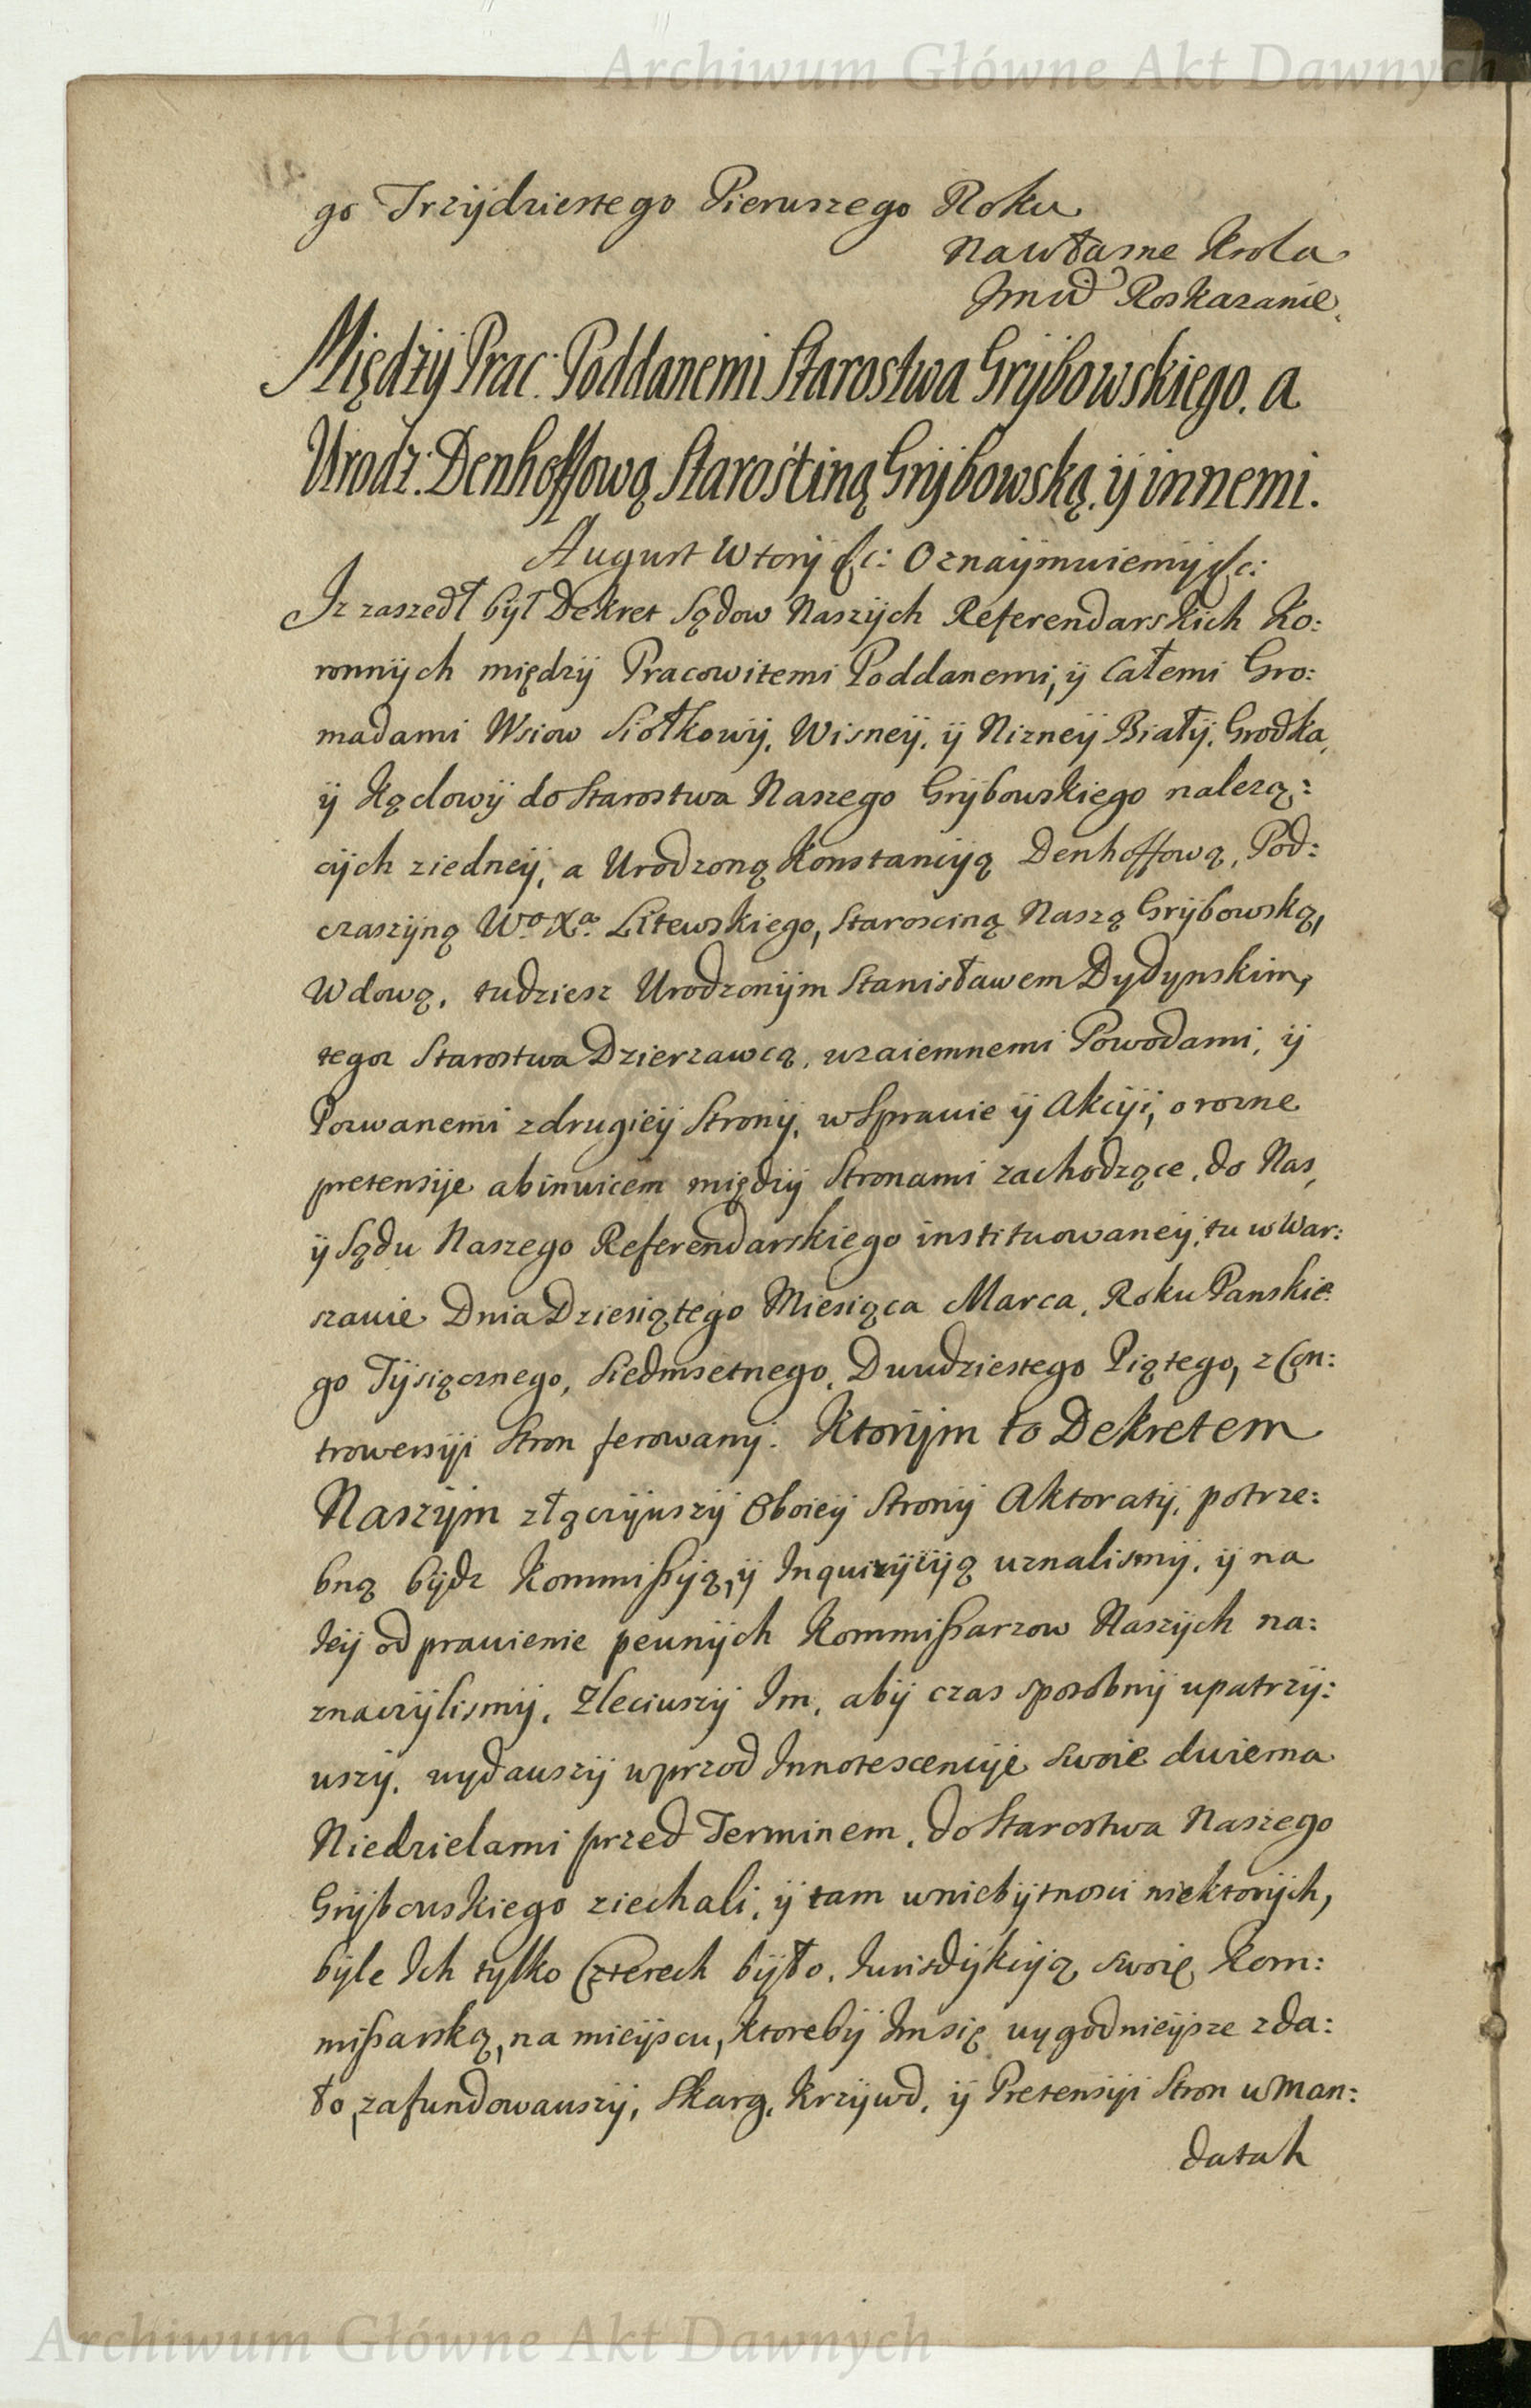 Archiwum Główne Akt Dawnych
go Trzÿdziestego Pierwszego Roku
Na własne Krola
Jmći Roskazanie.
Międzÿ Prac: Poddanemi Starostwa Grÿbowskiego. a
Urodz: Denhoffową Starościną Grÿbowską. ÿ innemi.
August Wtorÿ &c: Oznaÿmuiemÿ &c:
Iz zaszedł bÿł Dekret Sądow Naszÿch Referendarskich Ko:
ronnÿch międzÿ Pracowitemi Poddanemi, ÿ Całemi Gro:
madami Wsiow Siołkowÿ, Wisneÿ, ÿ Nizneÿ Białÿ, Grodka,
ÿ Kąclowÿ do Starostwa Naszego Grÿbowskiego nalezą:
cÿch ziedneÿ, a Urodzoną Konstancÿą Denhoffową, Pod:
czaszÿną Wo Xa Litewskiego, Starosciną Naszą Grÿbowską,
Wdową, tudziesz Urodzonÿm Stanisławem Dydynskim,
tegoz Starostwa Dzierzawcą, wzaiemnemi Powodami, ÿ
Pozwanemi zdrugieÿ Stronÿ, w Sprawie ÿ Akcÿi, o rozne
pretensÿe abinvicem międzÿ Stronami zachodzące, do Nas,
ÿ Sądu Naszego Referendarskiego instituowaneÿ, tu w War:
szawie Dnia Dziesiątego Miesiąca Marca, Roku Panskie
go Tÿsiącznego, Siedmsetnego, Dwudziestego Piątego, z Con:
trowersÿi Stron ferowanÿ. Ktorÿm to Dekretem
Naszÿm złączÿwszÿ Oboieÿ Stronÿ Aktoratÿ, potrze:
bną bÿdz Kommißÿą, ÿ Inquizÿcÿą uznalismÿ, ÿ na
Ieÿ odprawienie pewnÿch Kommißarzow Naszÿch na:
znaczÿlismÿ, Zleciwszÿ Im, abÿ czas sposobnÿ upatrzÿ:
wszÿ, wydawszÿ wprzod Innotescencÿe swoie dwiema
Niedzielami przed Terminem, do Starostwa Naszego
Grÿbowskiego ziechali, ÿ tam w niebÿtnosci niektorÿch,
bÿle Ich tylko Czterech bÿło, Iurisdÿkcÿą swoię Kom:
mißarską, na mieÿscu, ktorebÿ Im się wygodnieÿsze zda:
ło, zafundowawszÿ, Skarg, Krzÿwd, ÿ Pretensÿi Stron w Man:
datah
Archiwum Główne Akt Dawnych